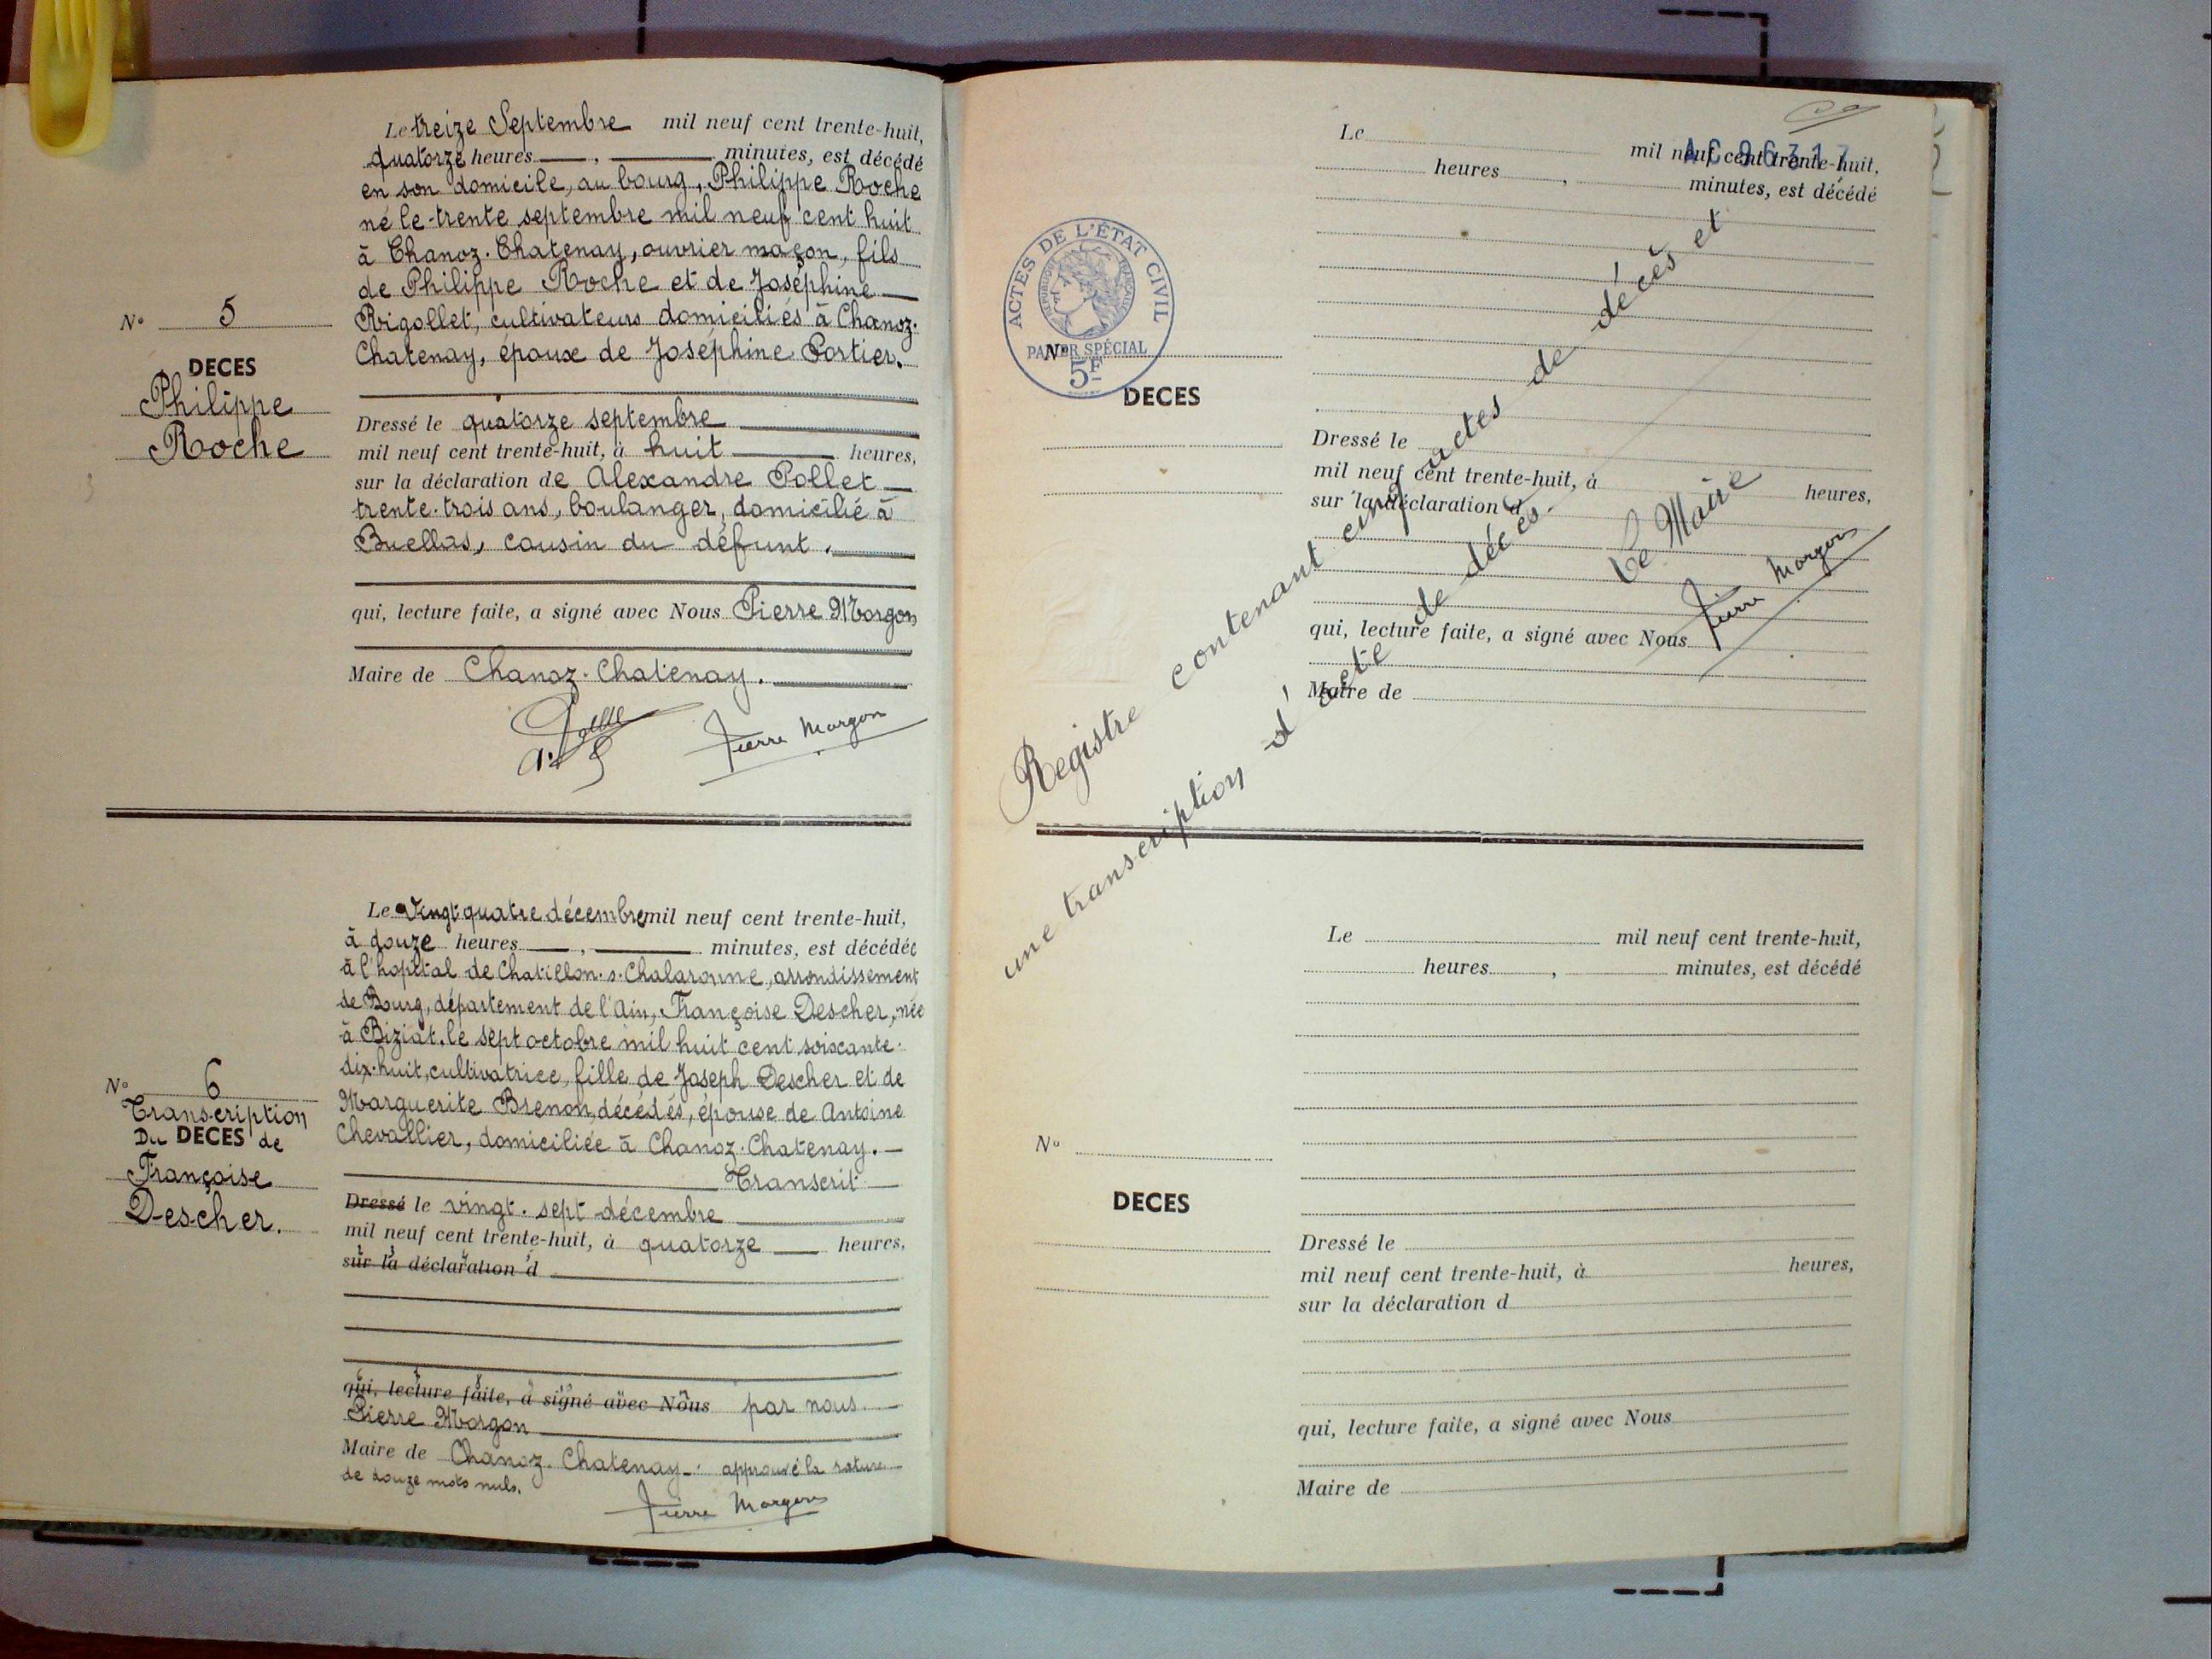 Le treize Septembre mil neuf cent trente-huit,
quatorze heures , minutes, est décédé
en son domicile, au bourg, Philippe Roche
né le trente septembre mil neuf cent huit
à Chanoz-Chatenay, ouvrier maçon, fils
de Philippe Roche et de Joséphine
Rigollet, cultivateurs domiciliés à Chanoz-
Chatenay, époux de Joséphine Portier.
N° 5
DECES
Philippe
Roche
Dressé le quatorze septembre
mil neuf cent trente-huit, à huit heures,
sur la déclaration de Alexandre Pollet
trente-trois ans, boulanger, domicilié à
Buellas, cousin du défunt.
qui, lecture faite, a signé avec Nous Pierre Morgon
Maire de Chanoz-Chatenay.
Pierre Morgon
Le Vingt-quatre décembre mil neuf cent trente-huit,
à douze heures , minutes, est décédée
à l'hopital de Chatillon-s-Chalaronne, arrondissement
de Bourg, département de l'Ain, Françoise Descher, née
à Biziat, le sept octobre mil huit cent soixante-
dix-huit, cultivatrice, fille de Joseph Descher et de
Marguerite Brenon, décédés, épouse de Antoine
Chevallier, domiciliée à Chanoz-Chatenay.
N° 6
Transcription
Du DECES de
Françoise
Descher.
Transcrit
Dressé le vingt-sept décembre
mil neuf cent trente-huit, à quatorze heures,
sur la déclaration d
qui, lecture faite, a signé avec Nous par nous
Pierre Morgon
Maire de Chanoz-Chatenay. approuvé la rature
de douze mots nuls.
Pierre Morgon
Le mil neuf cent trente-huit,
heures , minutes, est décédé
ACTES DE L'ÉTAT CIVIL
RÉPUBLIQUE FRANÇAISE
PAPIER SPÉCIAL
5F
N°
DECES
Dressé le
mil neuf cent trente-huit, à heures,
sur la déclaration d
qui, lecture faite, a signé avec Nous
Maire de
Registre contenant cinq actes de décès et
une transcription d'acte de décès.
Le Maire
Pierre Morgon
Le mil neuf cent trente-huit,
heures , minutes, est décédé
N°
DECES
Dressé le
mil neuf cent trente-huit, à heures,
sur la déclaration d
qui, lecture faite, a signé avec Nous
Maire de